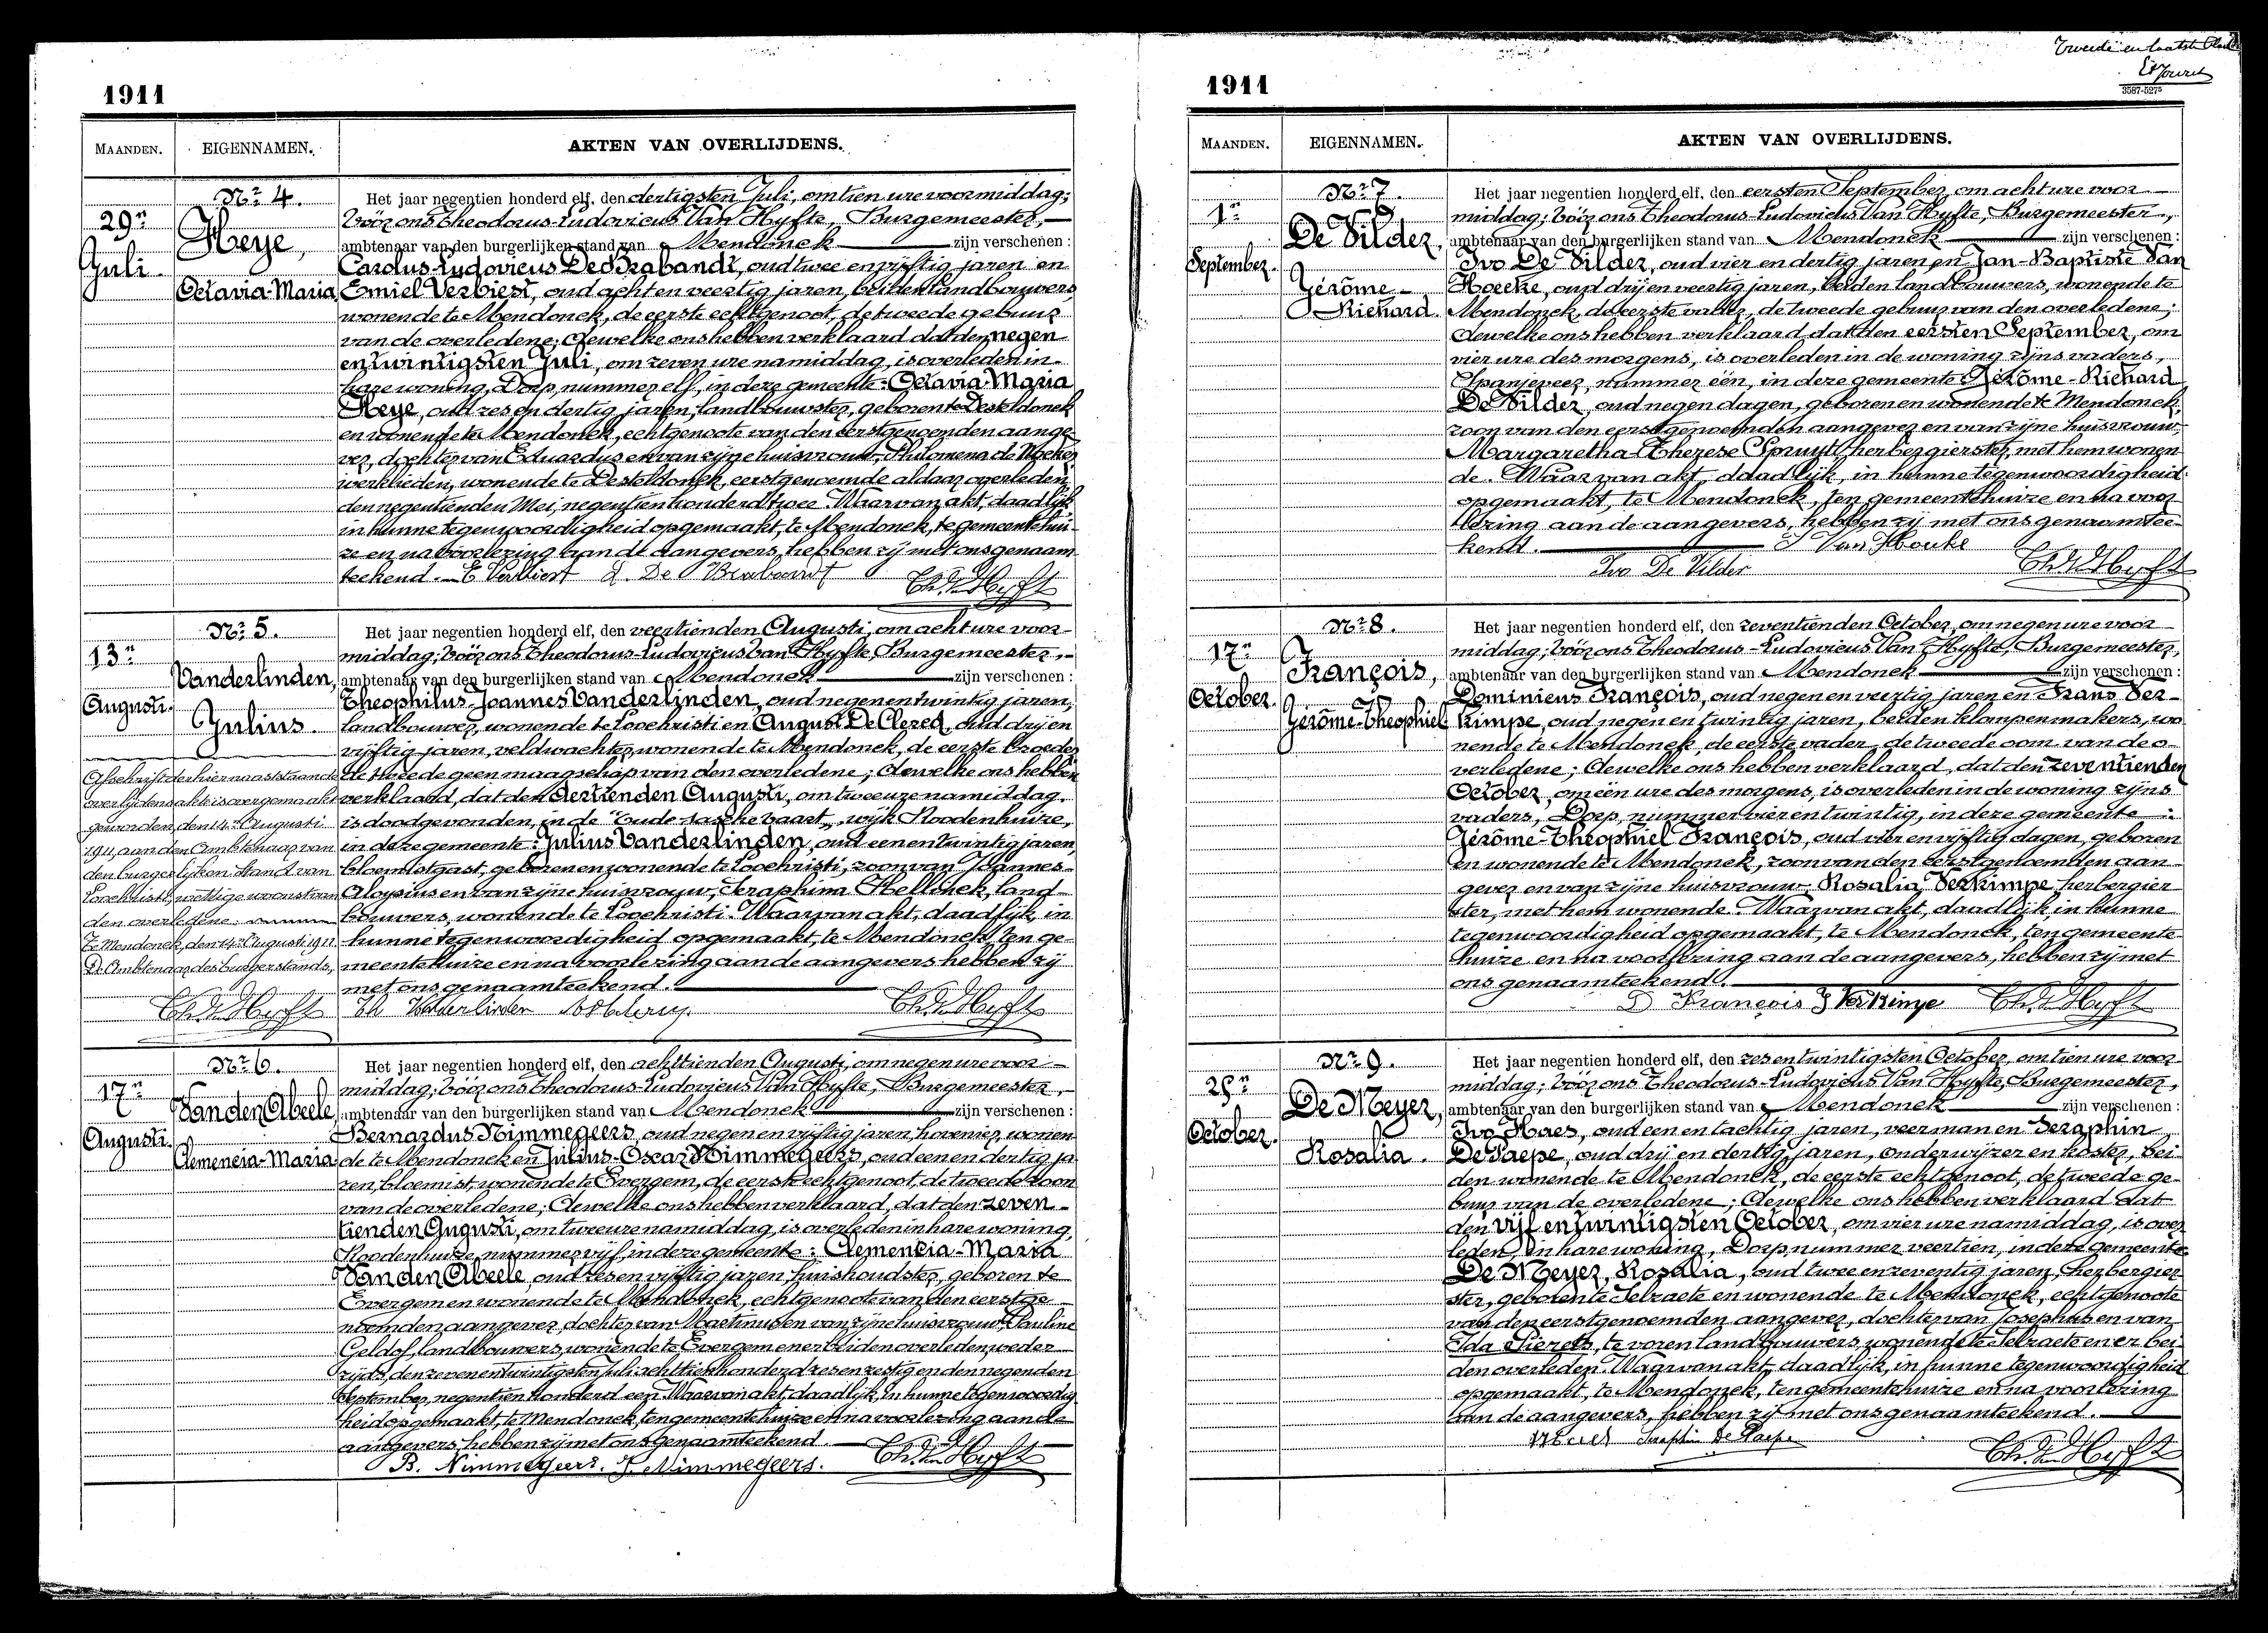 1911
MAANDEN.
EIGENNAMEN.
AKTEN VAN OVERLIJDENS.
Nr 4.
29n
Juli.
Heye,
Octavia-Maria
Het jaar negentien honderd elf, den dertigsten Juli, om tien ure voormiddag;
vóór ons Theodorus-Ludovicus Van Hyfte, Burgemeester,
ambtenaar van den burgerlijken stand van Mendonck zijn verschenen :
Carolus-Ludovicus De Brabandt, oud twee en vijftig jaren en
Emiel Verbiest, oud acht en veertig jaren, beiden landbouwers,
wonende te Mendonck, de eerste echtgenoot, de tweede gebuur
van de overledene; dewelke ons hebben verklaard dat den negen
en twintigsten Juli, om zeven ure namiddag, is overleden in
hare woning, Dorp, nummer elf, in deze gemeente: Octavia-Maria
Heye, oud zes en dertig jaren, landbouwster, geboren te Desteldonck
en wonende te Mendonck, echtgenoote van den eerstgenoemden aange-
ver, dochter van Eduardus en van zijne huisvrouw, Philomena de
werklieden, wonende te Desteldonck, eerstgenoemde aldaar overleden
den negentienden Mei, negentien honderd twee. Waarvan akt, daadlijk
in hunne tegenwoordigheid opgemaakt, te Mendonck, te gemeentehui-
ze en na voorlezing aan de aangevers, hebben zij met ons genaam-
teekend. E Verbiest L. De Brabandt Th. Van Hyfte
Nr 5.
13n
Augusti.
Vanderlinden,
Julius.
Het jaar negentien honderd elf, den veertienden Augusti, om acht ure voor-
middag; vóór ons Theodorus-Ludovicus Van Hyfte, Burgemeester,
ambtenaar van den burgerlijken stand van Mendonck zijn verschenen :
Theophilus-Joannes Vanderlinden, oud negen en twintig jaren,
landbouwer, wonende te Loochristi en August De Clercq, oud drij en
vijftig jaren, veldwachter, wonende te Mendonck, de eerste broeder
de tweede geen maagschap van den overledene; dewelke ons hebben
verklaard, dat den dertienden Augusti, om twee ure namiddag,
is doodgevonden, in de "oude vaart", wijk Roodenhuize,
in deze gemeente: Julius Vanderlinden, oud een en twintig jaren,
bloemistgast, geboren en wonende te Loochristi, zoon van Joannes-
Aloysius en van zijne huisvrouw, Seraphina, land-
bouwers, wonende te Loochristi. Waarvan akt, daadlijk, in
hunne tegenwoordigheid opgemaakt, te Mendonck, ten ge-
meentehuize en na voorlezing aan de aangevers hebben zij
met ons genaamteekend.
Th Vanderlinden Th. Van Hyfte
Afschrift der hiernaaststaande
overlijdensakte is overgemaakt
geworden, den 14n Augusti
1911, aan den Ambtenaar van
den burgerlijken stand van
Loochristi, wettige woonst van
den overledene.
Te Mendonck, den 14n Augusti 1911
De Ambtenaar des burgerstands,
Th. Van Hyfte
Nr 6.
17n
Augusti.
Van den Abeele,
Clemencia-Maria
Het jaar negentien honderd elf, den achttienden Augusti, om negen ure voor-
middag; vóór ons Theodorus-Ludovicus Van Hyfte, Burgemeester,
ambtenaar van den burgerlijken stand van Mendonck zijn verschenen :
Bernardus Nimmegeers, oud negen en vijftig jaren, hovenier, wonen-
de te Mendonck en Julius-Oscar Nimmegeers, oud een en dertig ja-
ren, bloemist, wonende te Evergem, de eerste echtgenoot, de tweede zoon
van de overledene; dewelke ons hebben verklaard, dat den zeven-
tienden Augusti, om twee ure namiddag, is overleden in hare woning,
Roodenhuize, nummer vijf, in deze gemeente: Clemencia-Maria
Van den Abeele, oud zes en vijftig jaren, huishoudster, geboren te
Evergem en wonende te Mendonck, echtgenoote van den eerstge-
noemden aangever, dochter van Martinus en van zijne huisvrouw, Pauline
Geldof, landbouwers, wonende te Evergem en er beiden overleden weder-
zijds, den zeven en twintigsten Juli achttien honderd zes en zestig en den negenden
September, negentien honderd een. Waarvan akt, daadlijk, in hunne tegenwoordig-
heid opgemaakt, te Mendonck, ten gemeentehuize en na voorlezing aan de
aangevers, hebben zij met ons genaamteekend.
B. Nimmegeers. J. Nimmegeers. Th. Van Hyfte
Tweede en laatste
3587-5275
1911
MAANDEN.
EIGENNAMEN.
AKTEN VAN OVERLIJDENS.
Nr 7.
1n
September.
De Vilder,
Jérôme-
Richard.
Het jaar negentien honderd elf, den eersten September, om acht ure voor-
middag; vóór ons Theodorus-Ludovicus Van Hyfte, Burgemeester,
ambtenaar van den burgerlijken stand van Mendonck zijn verschenen :
Ivo De Vilder, oud vier en dertig jaren en Jan-Baptiste Van
Hoecke, oud drij en veertig jaren, beiden landbouwers, wonende te
Mendonck, de eerste vader, de tweede gebuur van den overledene;
dewelke ons hebben verklaard, dat den eersten September, om
vier ure des morgens, is overleden in de woning zijns vaders,
Spanjeveer, nummer één, in deze gemeente: Jérôme-Richard
De Vilder, oud negen dagen, geboren en wonende te Mendonck,
zoon van den eerstgenoemden aangever en van zijne huisvrouw,
Margaretha-Therese Spruyt, herbergierster, met hem wonen-
de. Waarvan akt, daadlijk, in hunne tegenwoordigheid
opgemaakt, te Mendonck, ten gemeentehuize en na voor-
lezing aan de aangevers, hebben zij met ons genaamtee-
kend. J Van Houke
Ivo De Vilder Th. Van Hyfte
Nr 8.
17n
October.
François,
Jérôme-Theophiel
Het jaar negentien honderd elf, den zeventienden October, om negen ure voor-
middag; vóór ons Theodorus-Ludovicus Van Hyfte, Burgemeester,
ambtenaar van den burgerlijken stand van Mendonck zijn verschenen :
Dominicus François, oud negen en veertig jaren en Frans Ver-
kimpe, oud negen en twintig jaren, beiden klompenmakers, wo-
nende te Mendonck, de eerste vader, de tweede oom van de o-
verledene; dewelke ons hebben verklaard, dat den zeventienden
October, om één ure des morgens, is overleden in de woning zijns
vaders, Dorp, nummer vier en twintig, in deze gemeente:
Jérôme-Theophiel François, oud vier en vijftig dagen, geboren
en wonende te Mendonck, zoon van den eerstgenoemden aan-
gever en van zijne huisvrouw, Rosalia Verkimpe, herbergier-
ster, met hem wonende. Waarvan akt, daadlijk in hunne
tegenwoordigheid opgemaakt, te Mendonck, ten gemeente-
huize en na voorlezing aan de aangevers, hebben zij met
ons genaamteekend.
D François F Verkimpe Th. Van Hyfte
Nr 9.
25n
October.
De Meyer,
Rosalia.
Het jaar negentien honderd elf, den zes en twintigsten October, om tien ure voor-
middag; vóór ons Theodorus-Ludovicus Van Hyfte, Burgemeester,
ambtenaar van den burgerlijken stand van Mendonck zijn verschenen :
Ivo Haes, oud een en tachtig jaren, veerman en Seraphin
De Paepe, oud drij en dertig jaren, onderwijzer en koster, bei-
den wonende te Mendonck, de eerste echtgenoot, de tweede ge-
buur van de overledene; dewelke ons hebben verklaard dat
den vijf en twintigsten October, om vier ure namiddag, is over-
leden, in hare woning, Dorp nummer veertien, in deze gemeente
De Meyer, Rosalia, oud twee en zeventig jaren, herbergier-
ster, geboren te Selzaete en wonende te Mendonck, echtgenoote
van den eerstgenoemden aangever, dochter van Josephus en van
Ida Sierens, te voren landbouwers, wonende te Selzaete en er bei-
den overleden. Waarvan akt, daadlijk, in hunne tegenwoordigheid
opgemaakt, te Mendonck, ten gemeentehuize en na voorlezing
aan de aangevers, hebben zij met ons genaamteekend.
Seraphin De Paepe Th. Van Hyfte